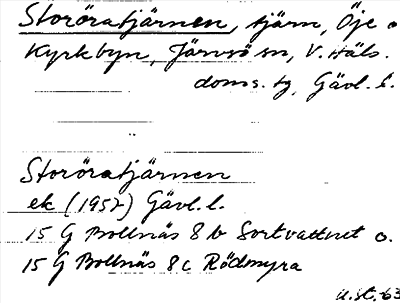 Storöratjärnen, tjärn, Öje o
Kyrkbyn, Järvsö sn, V. Häls.
doms. tg, Gävl. l.
Storöratjärnen
ek (1957) Gävl. l.
15 G Bollnäs 8 b Sortvattnet o.
15 G Bollnäs 8 c Rödmyra
u.st. 63